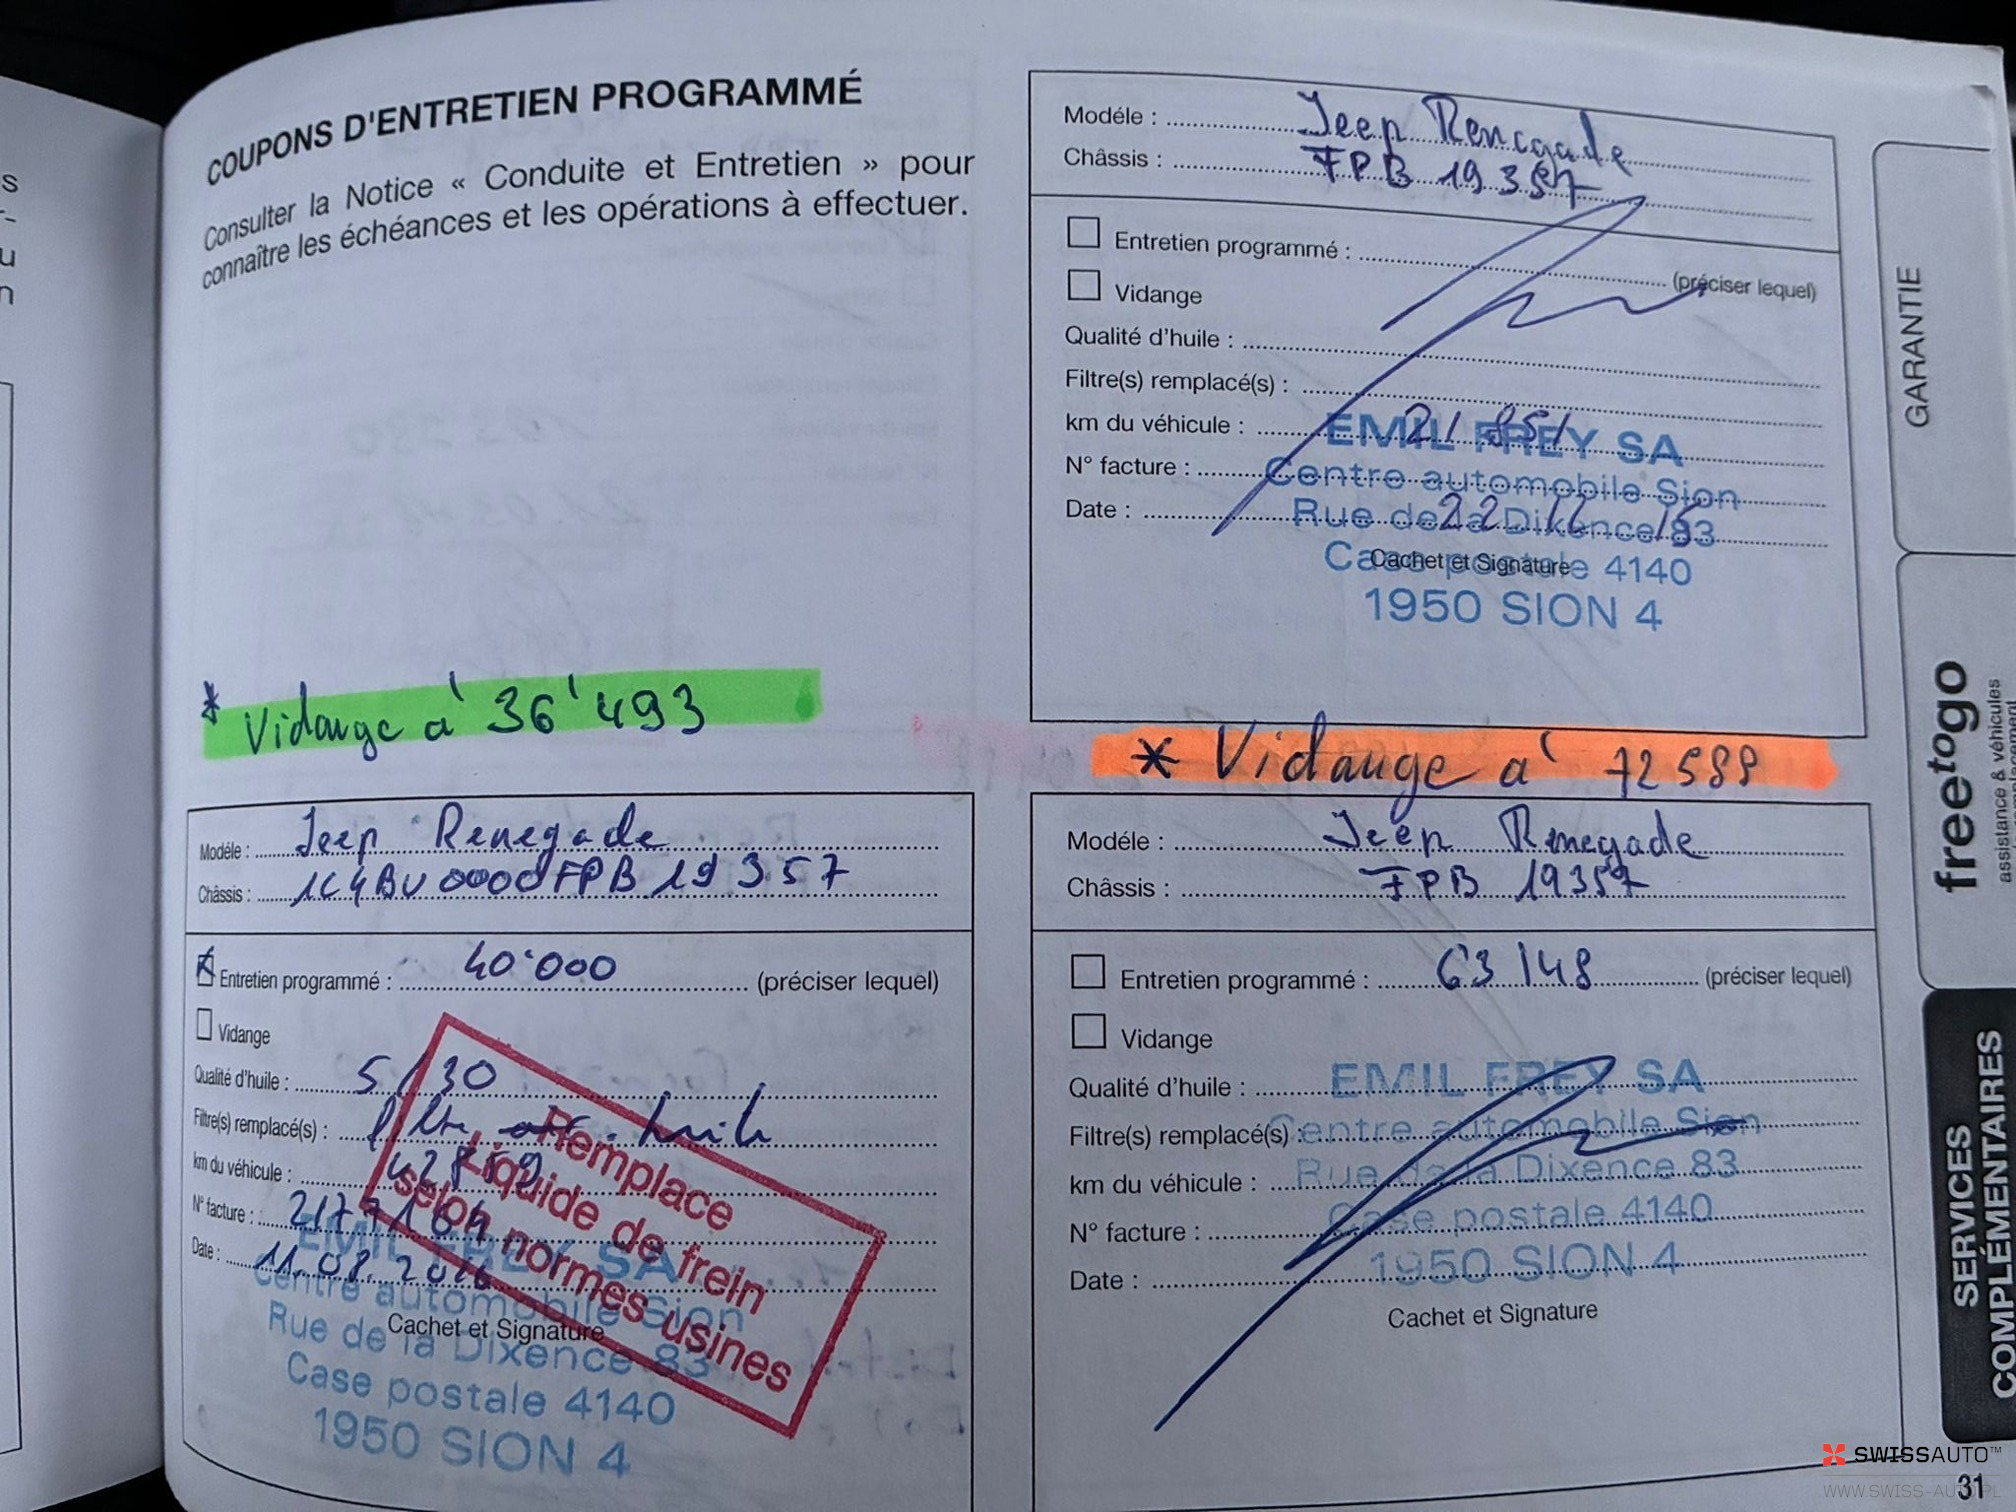 COUPONS D'ENTRETIEN PROGRAMMÉ
Consulter la Notice « Conduite et Entretien » pour
connaître les échéances et les opérations à effectuer.
* Vidange à 36'493
Modéle : Jeep Renegade
Châssis : 1C4BU0000FPB19357
Entretien programmé : 40'000 (préciser lequel)
Vidange
Qualité d'huile : 5/30
Filtre(s) remplacé(s) : filtre huile
km du véhicule :
N° facture : 2177164
Date : 11.08.2016
Cachet et Signature
EMIL FREY SA
Centre automobile Sion
Rue de la Dixence 83
Case postale 4140
1950 SION 4
Remplace
Liquide de frein
selon normes usines
Modéle : Jeep Renegade
Châssis : FPB 19357
Entretien programmé : (préciser lequel)
Vidange
Qualité d'huile :
Filtre(s) remplacé(s) :
km du véhicule : 21 851
N° facture :
Date : 22 12 15
Cachet et Signature
EMIL FREY SA
Centre automobile Sion
Rue de la Dixence 83
Case postale 4140
1950 SION 4
* Vidange à 72588
Modéle : Jeep Renegade
Châssis : FPB 19357
Entretien programmé : 63148 (préciser lequel)
Vidange
Qualité d'huile :
Filtre(s) remplacé(s) :
km du véhicule :
N° facture :
Date :
Cachet et Signature
EMIL FREY SA
Centre automobile Sion
Rue de la Dixence 83
Case postale 4140
1950 SION 4
GARANTIE
freetogo
assistance & véhicules
SERVICES
COMPLÉMENTAIRES
SWISSAUTO™
WWW.SWISS-AUTO.PL
31